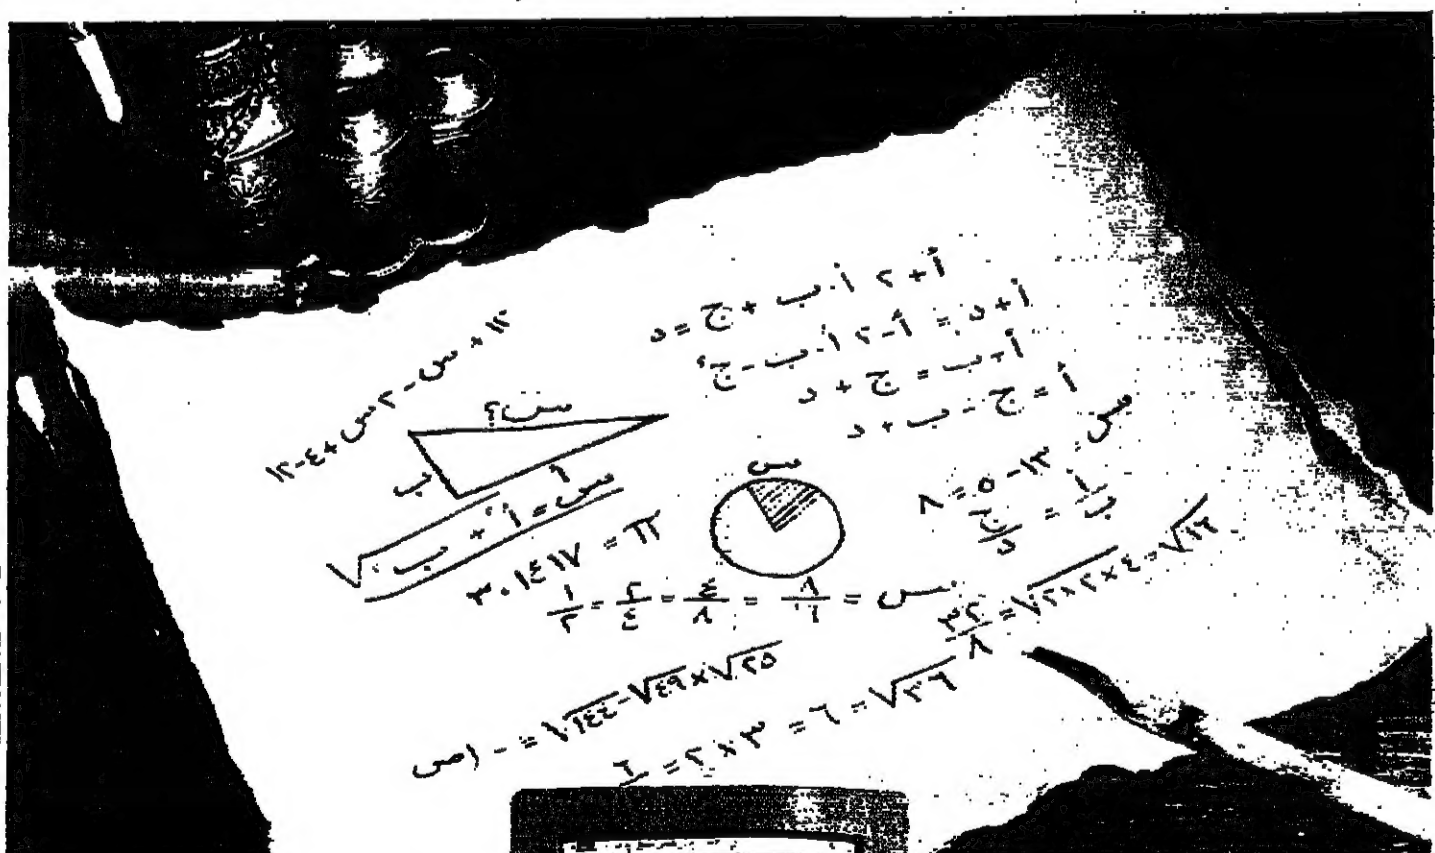 أ + ٢ أ.ب + ج = د
أ + د = أ - ٢ أ.ب - ج؟
أ + ب = ج + د
أ = ج - ب + د
١٢ + س - ٢ س + ٤ - ١٢
س؟
ب
أ
س = أ٢ + ب٢√
٣.١٤١٧ = π
س
س = ١٣ - ٥ = ٨
أ/ب = ج/د
١/٢ = ٢/٤ = ٤/٨ = ٨/١٦ = س
٣٢/٨ = √٢×٢×٤ = √١٦
= √١٤٤ - √٤٩ × √٢٥
٦ = ٢ × ٣ = ٦ = √٣٦